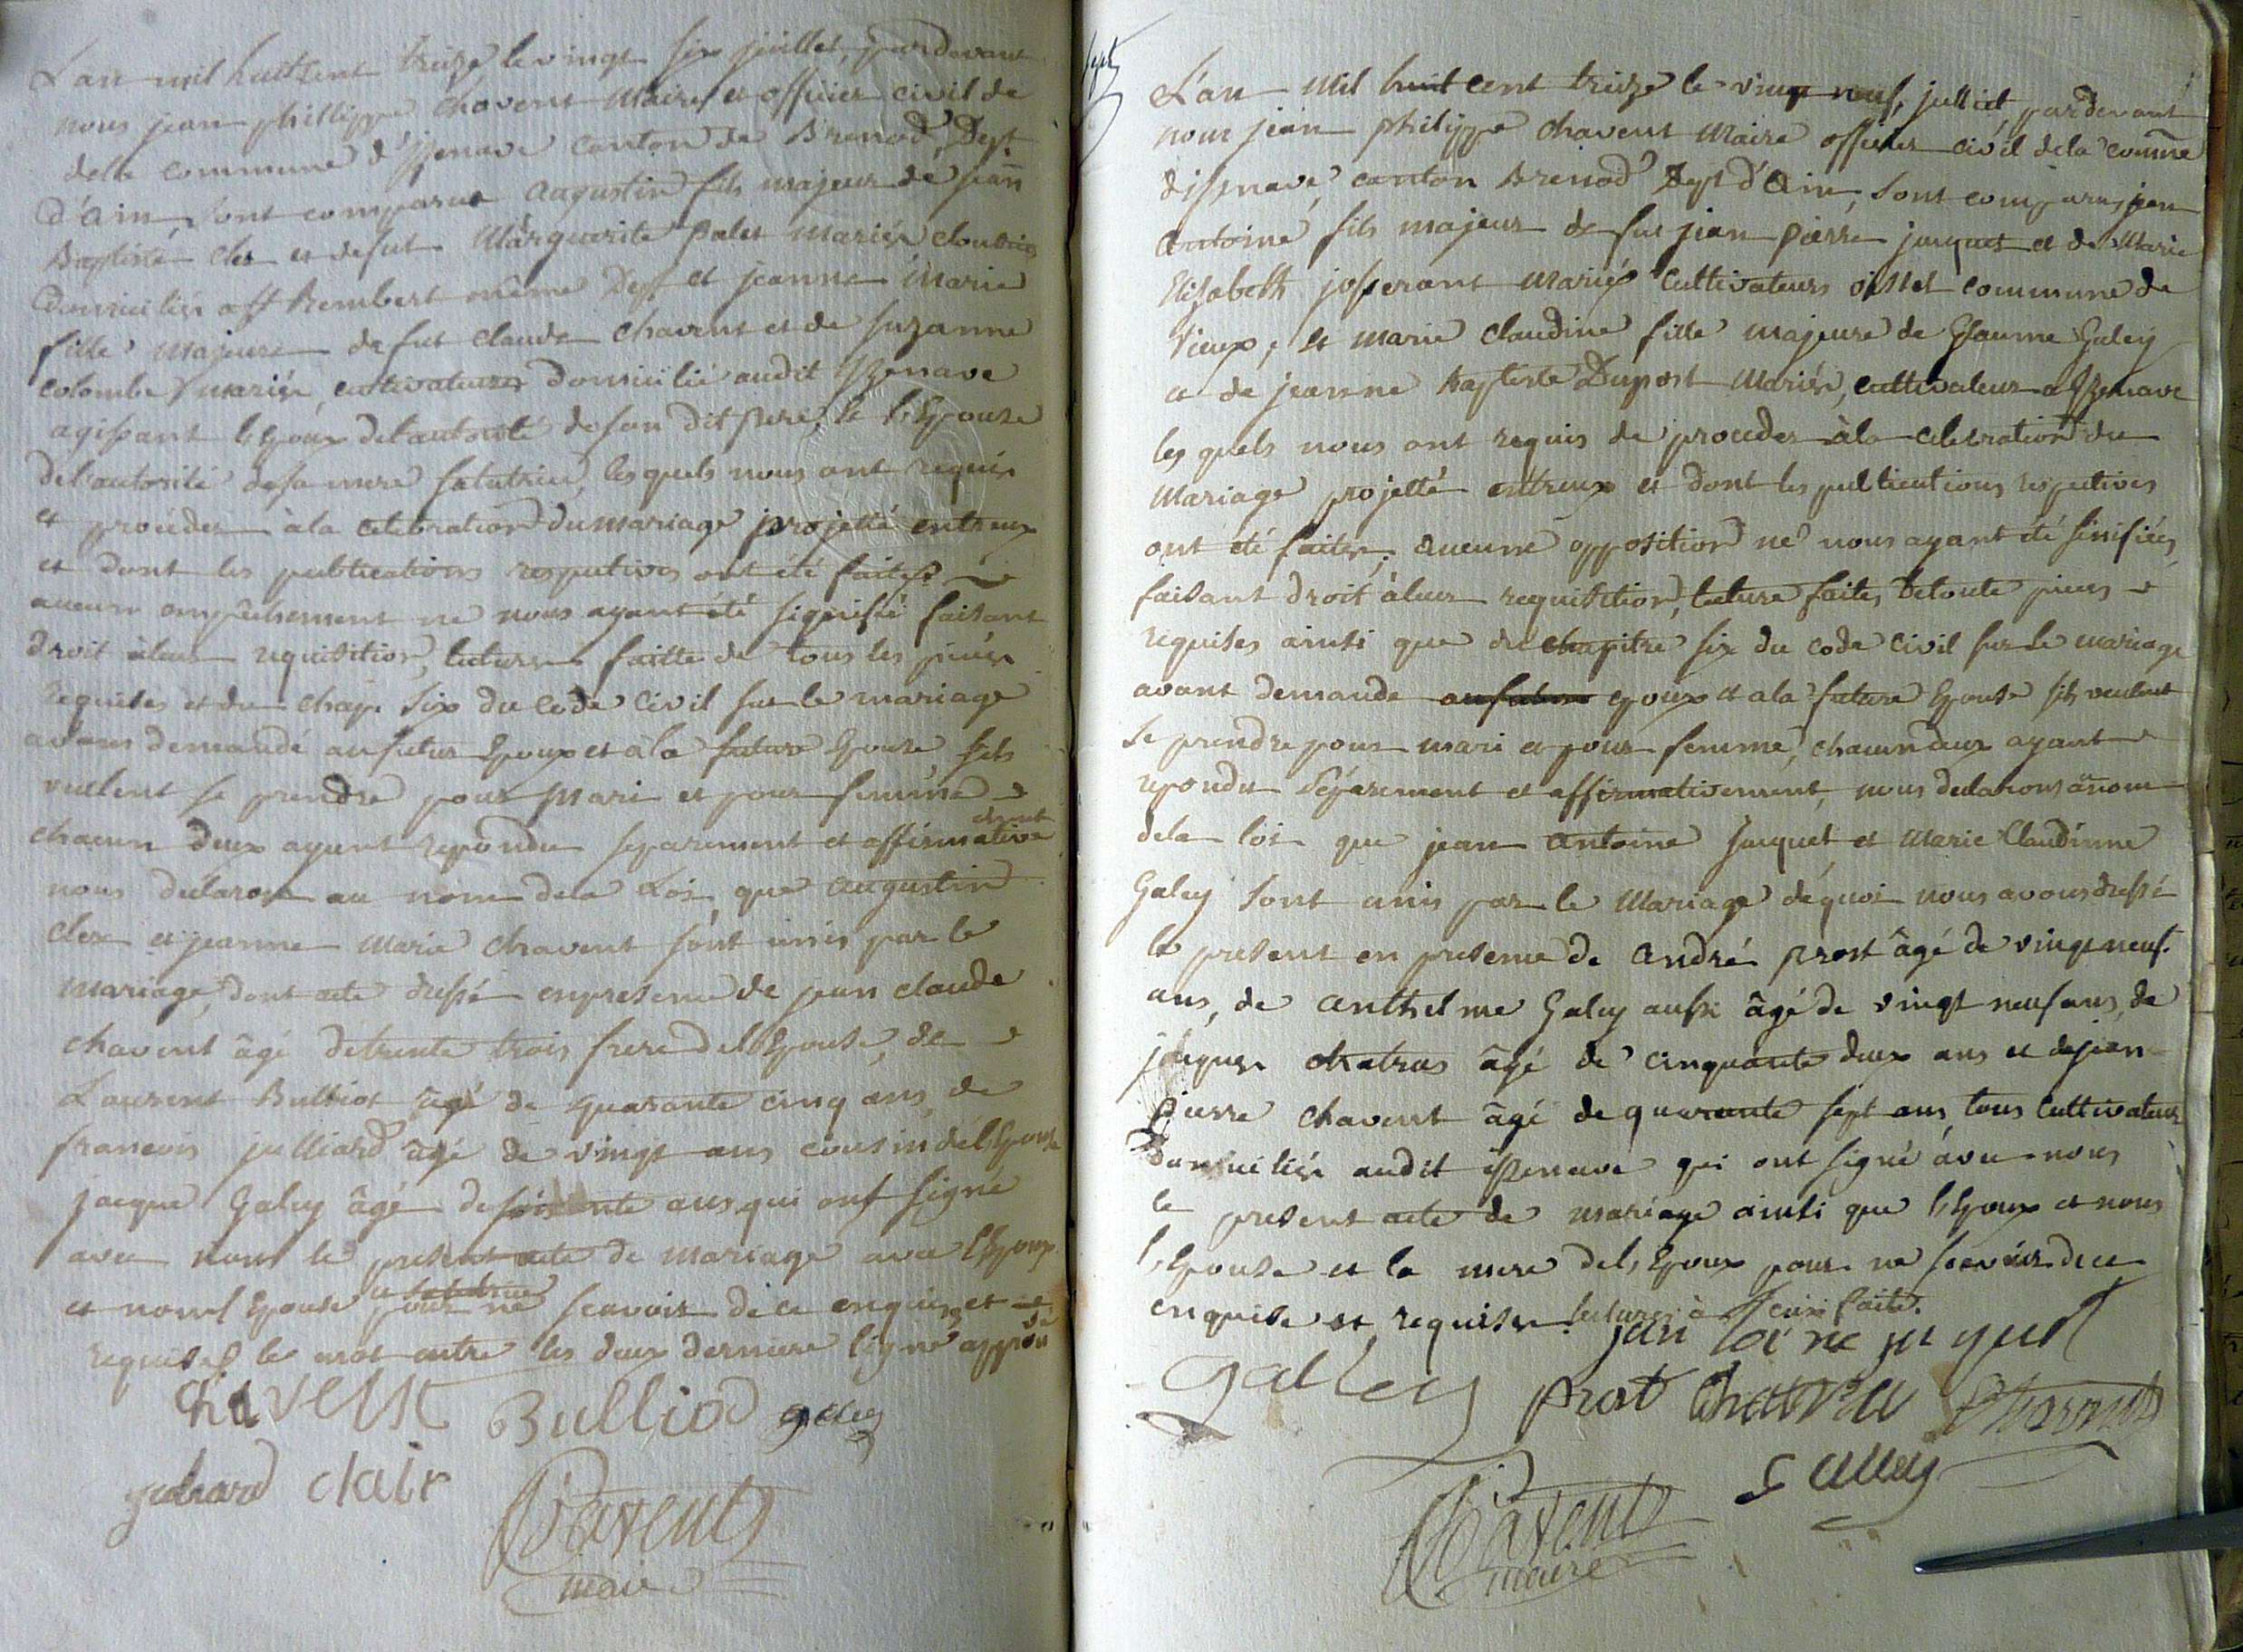 L'an mil huit cent treize, le vingt six juillet, pardevant
nous jean philippe chavent Maire et officier civil de
dela commune d'Izenave canton de Brenod, Dept
d'Ain, sont comparus augustin fils majeur de jean
Baptiste cler et defut Marguerite palet mariés
domiciliés a st Rembert même Dept et jeanne Marie
fille Majeure de fut claude chavent et de suzanne
colombe mariés, cultivateurs domicilié audit Izenave
agissant l'Epoux de l'autorité de son dit pere, et l'Epouse
del'autorité de sa mere sa tutrice, lesquels nous ont requis
et proceder à la celebration du mariage projetté entreux
et dont les publications respectives ont été faites
aucun empechement ne nous ayant été signifié faisant
droit àleur requisition, lecture faitte de tous les pieces
requises et du chap. six du code civil sur le mariage
avons demandé au futur Epoux et à la future Epouse, sils
veulent se prendre pour mari et pour femme
chacun deux ayant repondu separement et affirmative
nous declarons au nom dela Loi, que augustin
cler et jeanne Marie chavent sont unis par le
mariage, dont acte dressé en presence de jean claude
chavent âgé de trente trois frere del'Epouse, de
Laurent Bulliot âgé de quarante cinq ans, de
francois julliard âgé de vingt ans cousin del'Epouse
jacque Galey âgé de soixante ans, qui ont signé
avec nous le present acte de mariage avec l'Epoux
et non l'Epouse pour ne scavoir de ce enquis et
requises le mot entre les deux derniere ligne approuvé
chavent Bulliod galey
juliard clair
Chavent
maire
L'an mil huit cent treize le vingt neuf, julliet, pardevant
nous jean philippe chavent Maire officier civil dela comne
dissnave, canton Brenod Dept d'Ain, sont comparus jean
antoine fils majeur de fut jean pierre jacquet et de Marie
Elizabeth josserant Mariés cultivateurs commune de
Vieux, et marie claudine fille majeure de Galey
et de jeanne baptiste Dupost Mariés, cultivateur a Izenave
les quels nous ont requis de proceder àla celebration du
Mariage projetté entreux et dont les publications respectives
ont été faites, aucune opposition ne nous ayant été sinifiées,
faisant droit àleur requisition, lecture faites detoute pieces
requises ainsi que du chapitre six du code civil sur le mariage
avont demande au futur epoux et ala future Epouse sils veulent
se prendre pour mari et pour femme, chacun deux ayant
repondu séparement et affirmativement, nous declarons au nom
dela loi que jean antoine jacquet et Marie Claudinne
Galey sont unis par le Mariage de quoi nous avons dressé
le present en presence de andré prost âgé de vingt neuf
ans, de anthelme Galey aussi âgé de vingt neuf ans, de
jacques chatras âgé de cinquante deux ans et de jean
pierre chavent âgé de quarante sept ans, tous cultivateurs
domiciliés audit issenave qui ont signé avec nous
le present acte de mariage ainsi que l'Epoux et nous
l'Epouse et la mere del'Epoux pour ne scavoir de ce
enquise et requises. lectures à faite.
jan toine jaquet
galley prost
galley
Chavent
maire